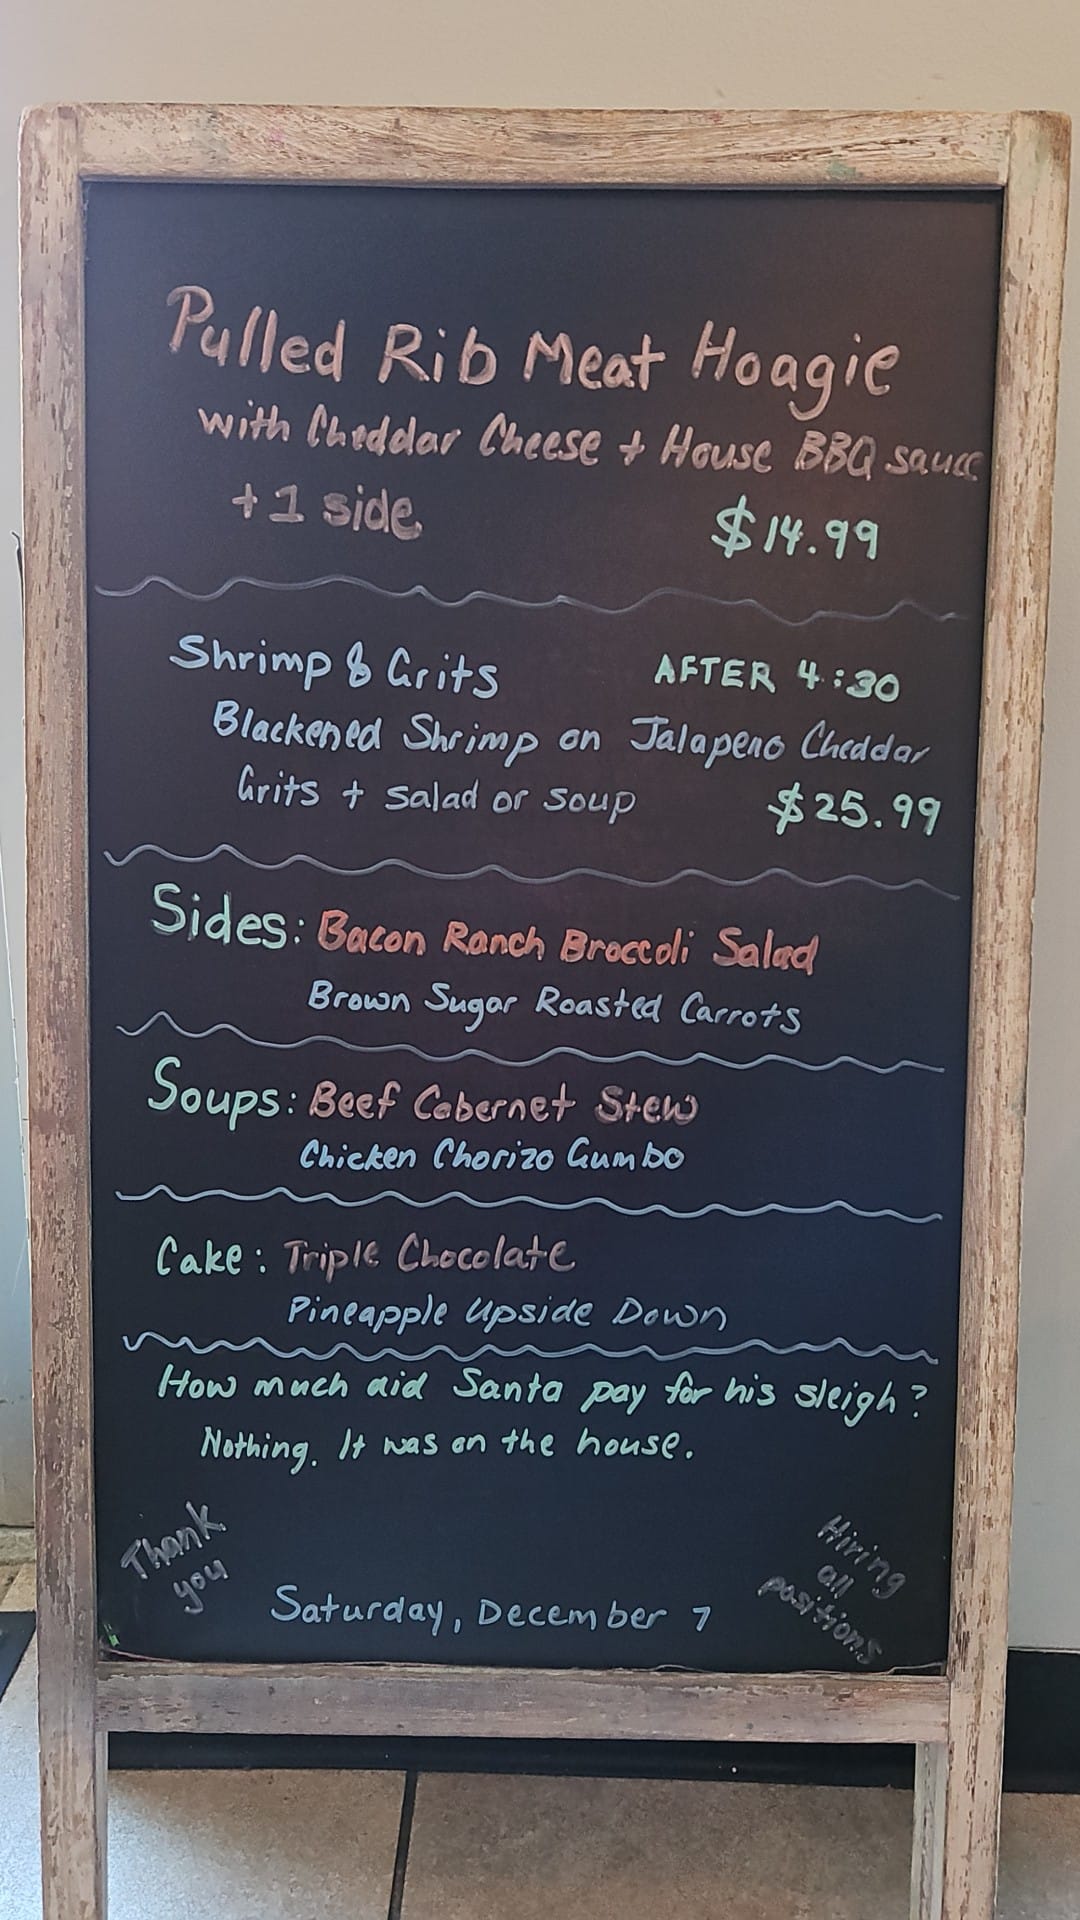 Pulled Rib Meat Hoagie
with Cheddar Cheese + House BBQ sauce
+1 side $14.99
Shrimp & Grits AFTER 4:30
Blackened Shrimp on Jalapeno Cheddar
Grits + Salad or Soup $25.99
Sides: Bacon Ranch Broccoli Salad
Brown Sugar Roasted Carrots
Soups: Beef Cabernet Stew
Chicken Chorizo Gumbo
Cake: Triple Chocolate
Pineapple Upside Down
How much did Santa pay for his sleigh?
Nothing. It was on the house.
Thank
you
Hiring
all
positions
Saturday, December 7